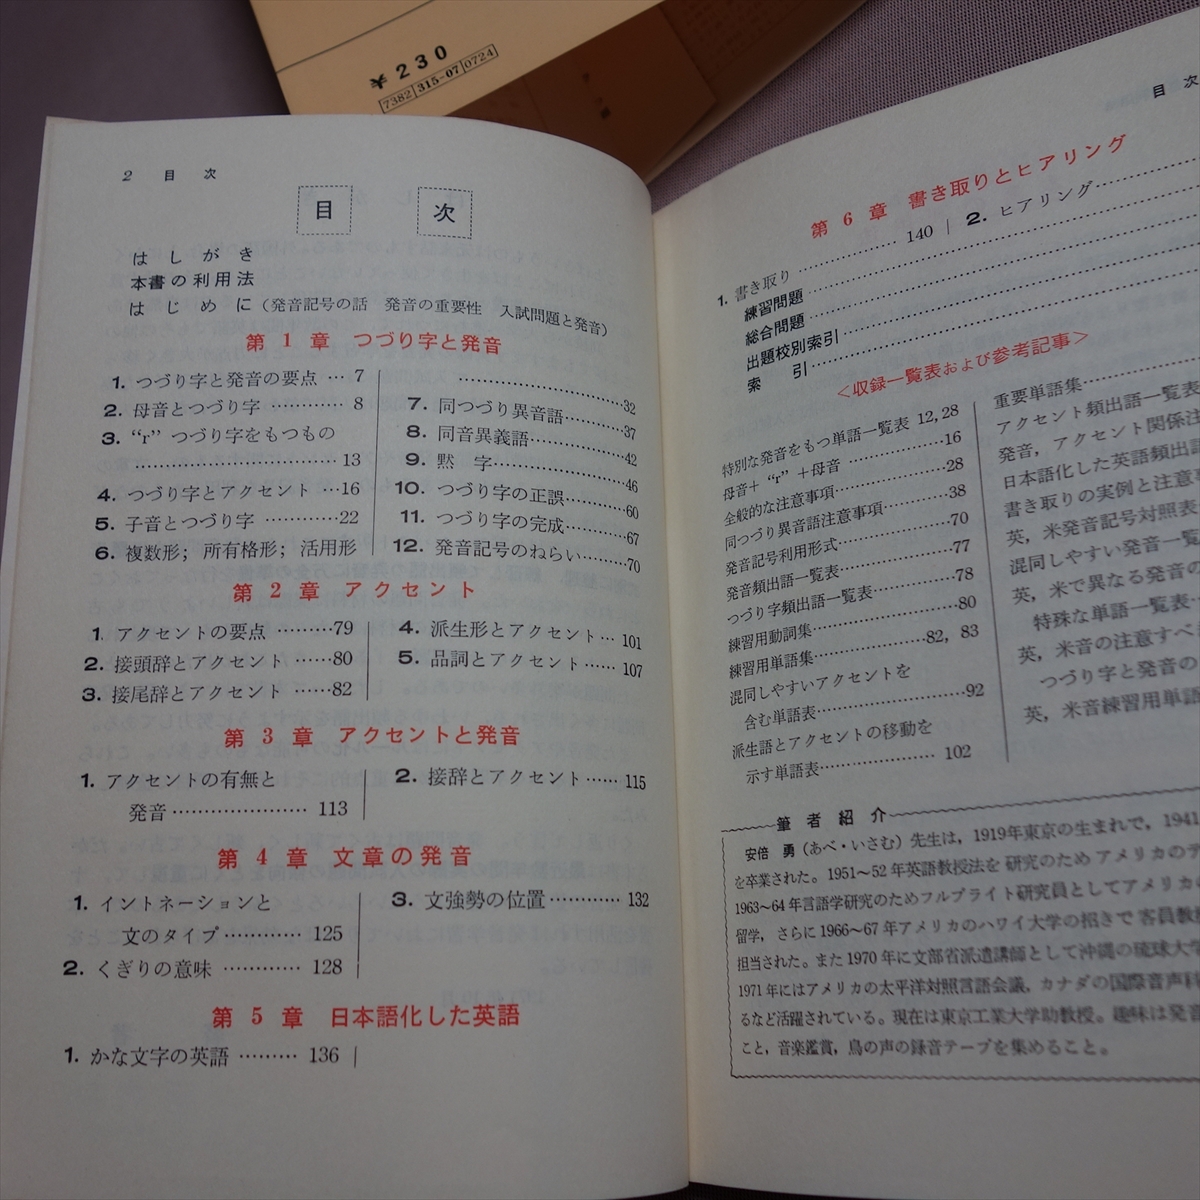 ¥230
7382 315-07 0724
2 目 次
目 次
はしがき
本書の利用法
はじめに(発音記号の話 発音の重要性 入試問題と発音)
第1章 つづり字と発音
1. つづり字と発音の要点 … 7
2. 母音とつづり字 ………… 8
3. “r” つづり字をもつもの
………………………… 13
4. つづり字とアクセント …16
5. 子音とつづり字 …………22
6. 複数形; 所有格形; 活用形
…………………… 32
7. 同つづり異音語………37
8. 同音異義語…………42
9. 黙 字………………46
10. つづり字の正誤………60
11. つづり字の完成………67
12. 発音記号のねらい……70
第2章 アクセント
1. アクセントの要点 ………79
2. 接頭辞とアクセント ……80
3. 接尾辞とアクセント ……82
4. 派生形とアクセント… 101
5. 品詞とアクセント…… 107
第3章 アクセントと発音
1. アクセントの有無と
発音 ………………… 113
2. 接辞とアクセント…… 115
第4章 文章の発音
1. イントネーションと
文のタイプ ………… 125
2. くぎりの意味 ………… 128
3. 文強勢の位置………… 132
第5章 日本語化した英語
1. かな文字の英語 ……… 136
目 次
第6章 書き取りとヒアリング
1. 書き取り ……………… 140
2. ヒアリング…………
練習問題 ……………………
総合問題 ……………………
出題校別索引 ……………………
索 引 ……………………
<収録一覧表および参考記事>
特別な発音をもつ単語一覧表 12, 28
母音+“r”+母音 ……………16
全般的な注意事項……………28
同つづり異音語注意事項………38
発音記号利用形式……………70
発音頻出語一覧表……………77
つづり字頻出語一覧表…………78
練習用動詞集…………………80
練習用単語集……………82, 83
混同しやすいアクセントを
含む単語表………………92
派生語とアクセントの移動を
示す単語表…………… 102
重要単語集……………
アクセント頻出語一覧表
発音, アクセント関係注
日本語化した英語頻出語
書き取りの実例と注意事
英, 米発音記号対照表
混同しやすい発音一覧
英, 米で異なる発音の
特殊な単語一覧表…
英, 米音の注意すべ
つづり字と発音の
英, 米音練習用単語
筆者紹介
安倍 勇(あべ・いさむ)先生は, 1919年東京の生まれで, 1941
を卒業された。1951~52年英語教授法を研究のためアメリカのテ
1963~64年言語学研究のためフルブライト研究員としてアメリカの
留学, さらに1966~67年アメリカのハワイ大学の招きで 客員教授
担当された。また1970年に文部省派遣講師として沖縄の琉球大学
1971年にはアメリカの太平洋対照言語会議, カナダの国際音声科
るなど活躍されている。現在は東京工業大学助教授。趣味は発音
こと, 音楽鑑賞, 鳥の声の録音テープを集めること。